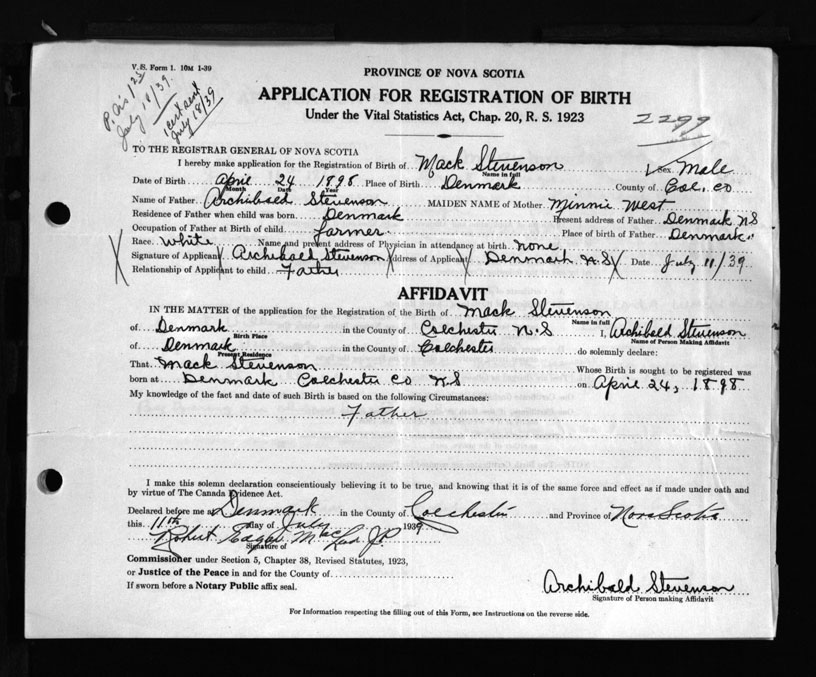 V. S. Form 1. 10M 1-39
July 18/39
1 cert sent
July 18/39
PROVINCE OF NOVA SCOTIA
APPLICATION FOR REGISTRATION OF BIRTH
Under the Vital Statistics Act, Chap. 20, R. S. 1923
2299
TO THE REGISTRAR GENERAL OF NOVA SCOTIA
I hereby make application for the Registration of Birth of Mack Stevenson Sex Male
Name in full
Date of Birth April 24 1898 Place of Birth Denmark County of Col. Co
Month Date Year
Name of Father Archibald Stevenson MAIDEN NAME of Mother Minnie West
Residence of Father when child was born Denmark Present address of Father Denmark N S
Occupation of Father at Birth of child farmer Place of birth of Father Denmark "
Race White Name and present address of Physician in attendance at birth none
Signature of Applicant Archibald Stevenson Address of Applicant Denmark N.S Date July 11/39
Relationship of Applicant to child Father
AFFIDAVIT
IN THE MATTER of the application for the Registration of the Birth of Mack Stevenson
Name in full
of Denmark in the County of Colchester N.S I, Archibald Stevenson
Birth Place Name of Person Making Affidavit
of Denmark in the County of Colchester do solemnly declare:
Present Residence
That Mack Stevenson Whose Birth is sought to be registered was
born at Denmark Colchester Co N S on April 24, 1898
My knowledge of the fact and date of such Birth is based on the following Circumstances:
Father
I make this solemn declaration conscientiously believing it to be true, and knowing that it is of the same force and effect as if made under oath and
by virtue of The Canada Evidence Act.
Declared before me at Denmark in the County of Colchester and Province of Nova Scotia
this 11th day of July 1939
Robert J.P.
Signature of
Commissioner under Section 5, Chapter 38, Revised Statutes, 1923,
or Justice of the Peace in and for the County of
If sworn before a Notary Public affix seal.
Archibald Stevenson
Signature of Person making Affidavit
For Information respecting the filling out of this Form, see Instructions on the reverse side.